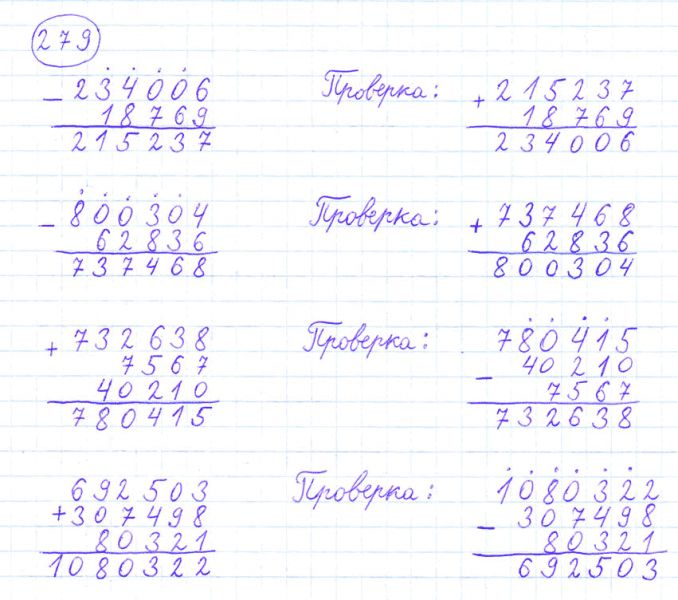 279
234006 Проверка: 215237
− 18769 + 18769
215237 234006
800304 Проверка: 737468
− 62836 + 62836
737468 800304
+ 732638 Проверка: 780415
7567 − 40210
40210 7567
780415 732638
692503 Проверка: 1080322
+ 307498 − 307498
80321 80321
1080322 692503